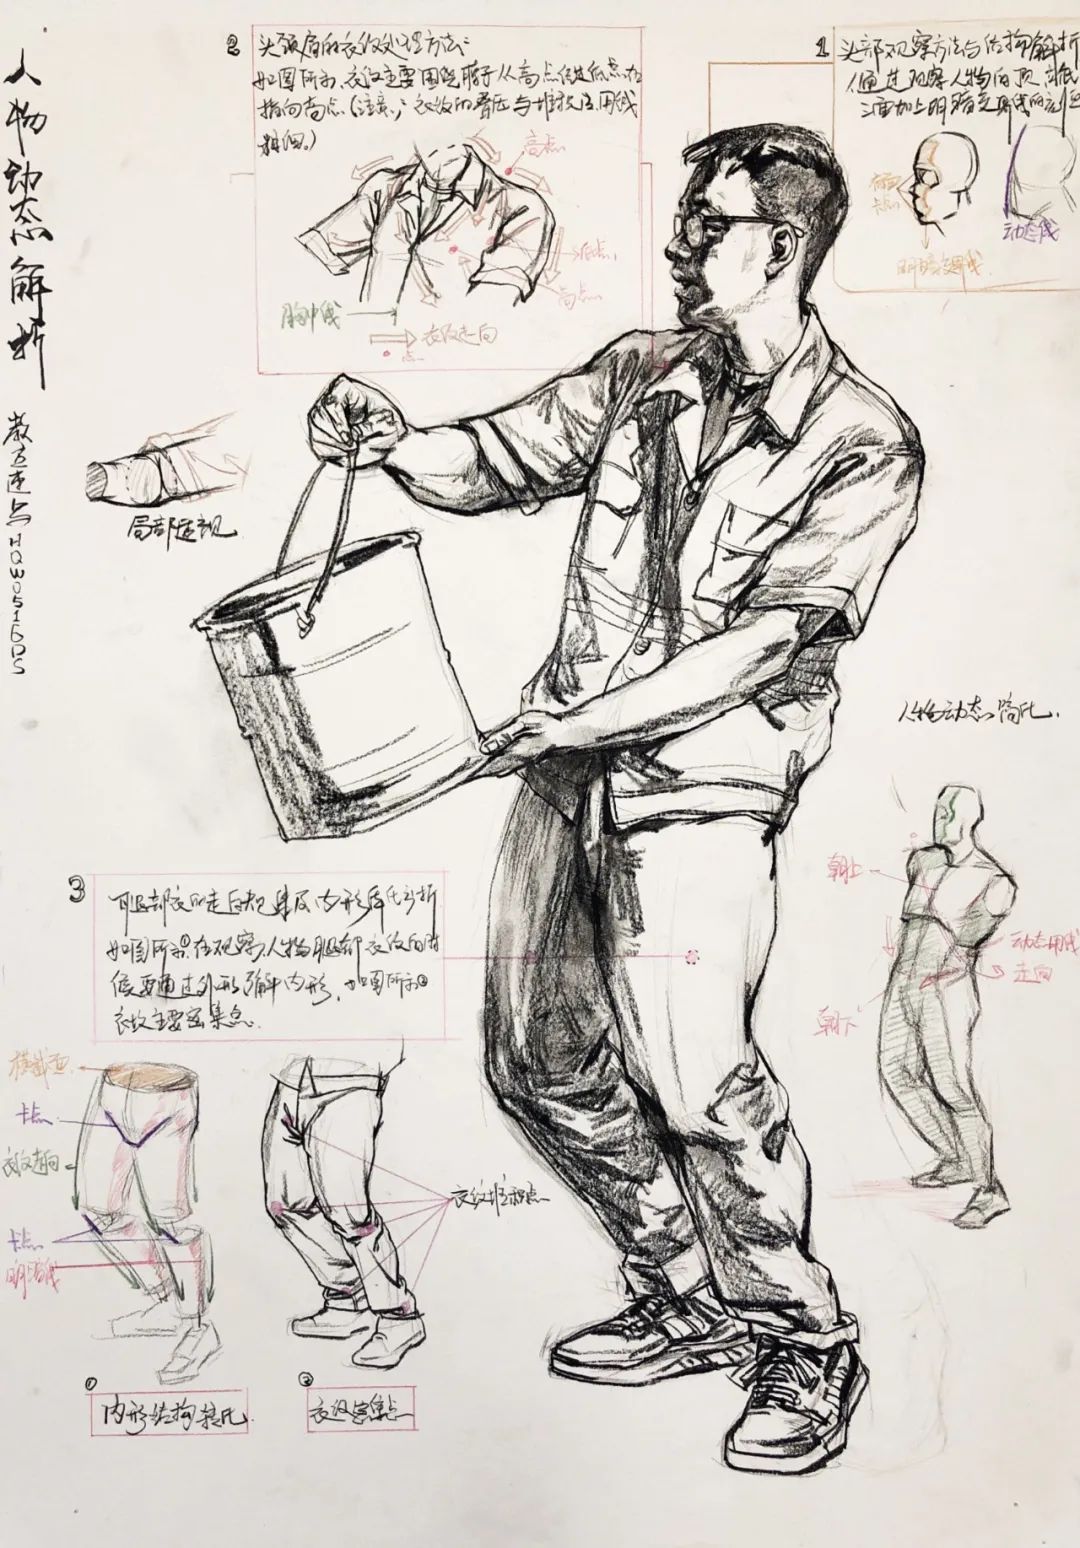 人物动态解析
HQW0516DS
2
头颈肩的衣纹处理方法:
如图所示,衣纹主要围绕脖子从高点
指向高点(注意:衣纹的叠压与堆积
用线
粗细。)
高点
低点
高点
胸中线
衣纹走向
点
1
头部观察方法与结构解析
(通过观察人物的顶
三面加上明暗交界线的
卡点
明暗交界线
动态线
局部透视
人物动态简化.
朝上
动态用线
走向
朝下
3
腿部衣纹走向规 及内形 化分析
如图所示①在观察人物腿部衣纹的时
候要通过外形了解内形,如图所示②
衣纹主要密集点.
横截面
卡点
衣纹走向
卡点
明暗线
衣纹堆积点
①
内形结构转化.
②
衣纹密集点